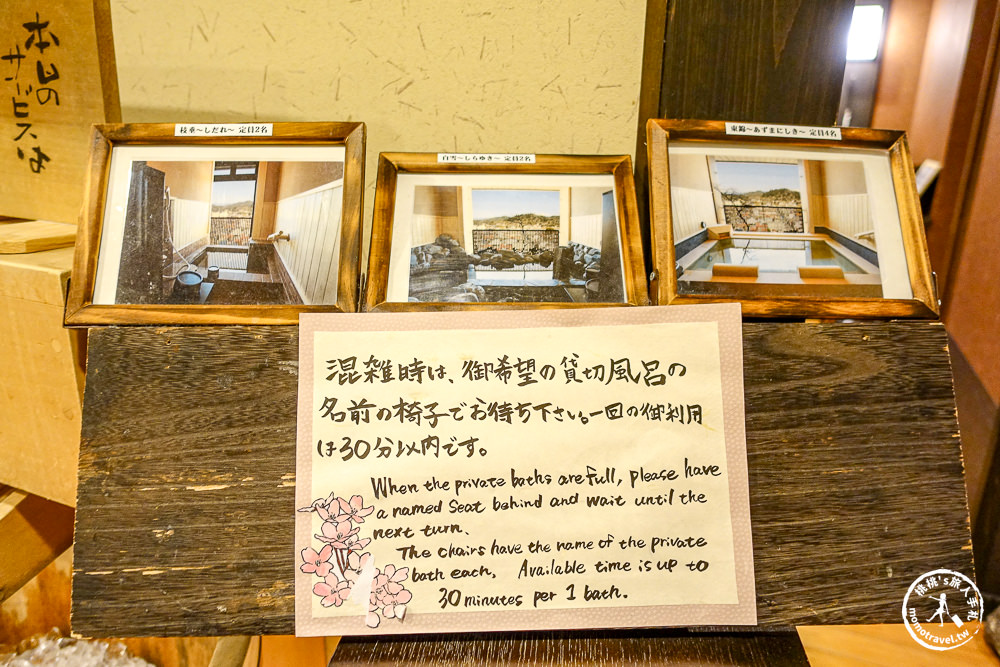 本日の
サービスは
枝垂~しだれ~ 定員2名
白雪~しらゆき~ 定員2名
東錦~あずまにしき~ 定員4名
混雑時は、御希望の貸切風呂の
名前の椅子でお待ち下さい。一回の御利用
は30分以内です。
When the private baths are full, please have
a named seat behind and wait until the
next turn.
The chairs have the name of the private
bath each. Available time is up to
30 minutes per 1 bath.
桃桃's旅人手札
momotravel.tw